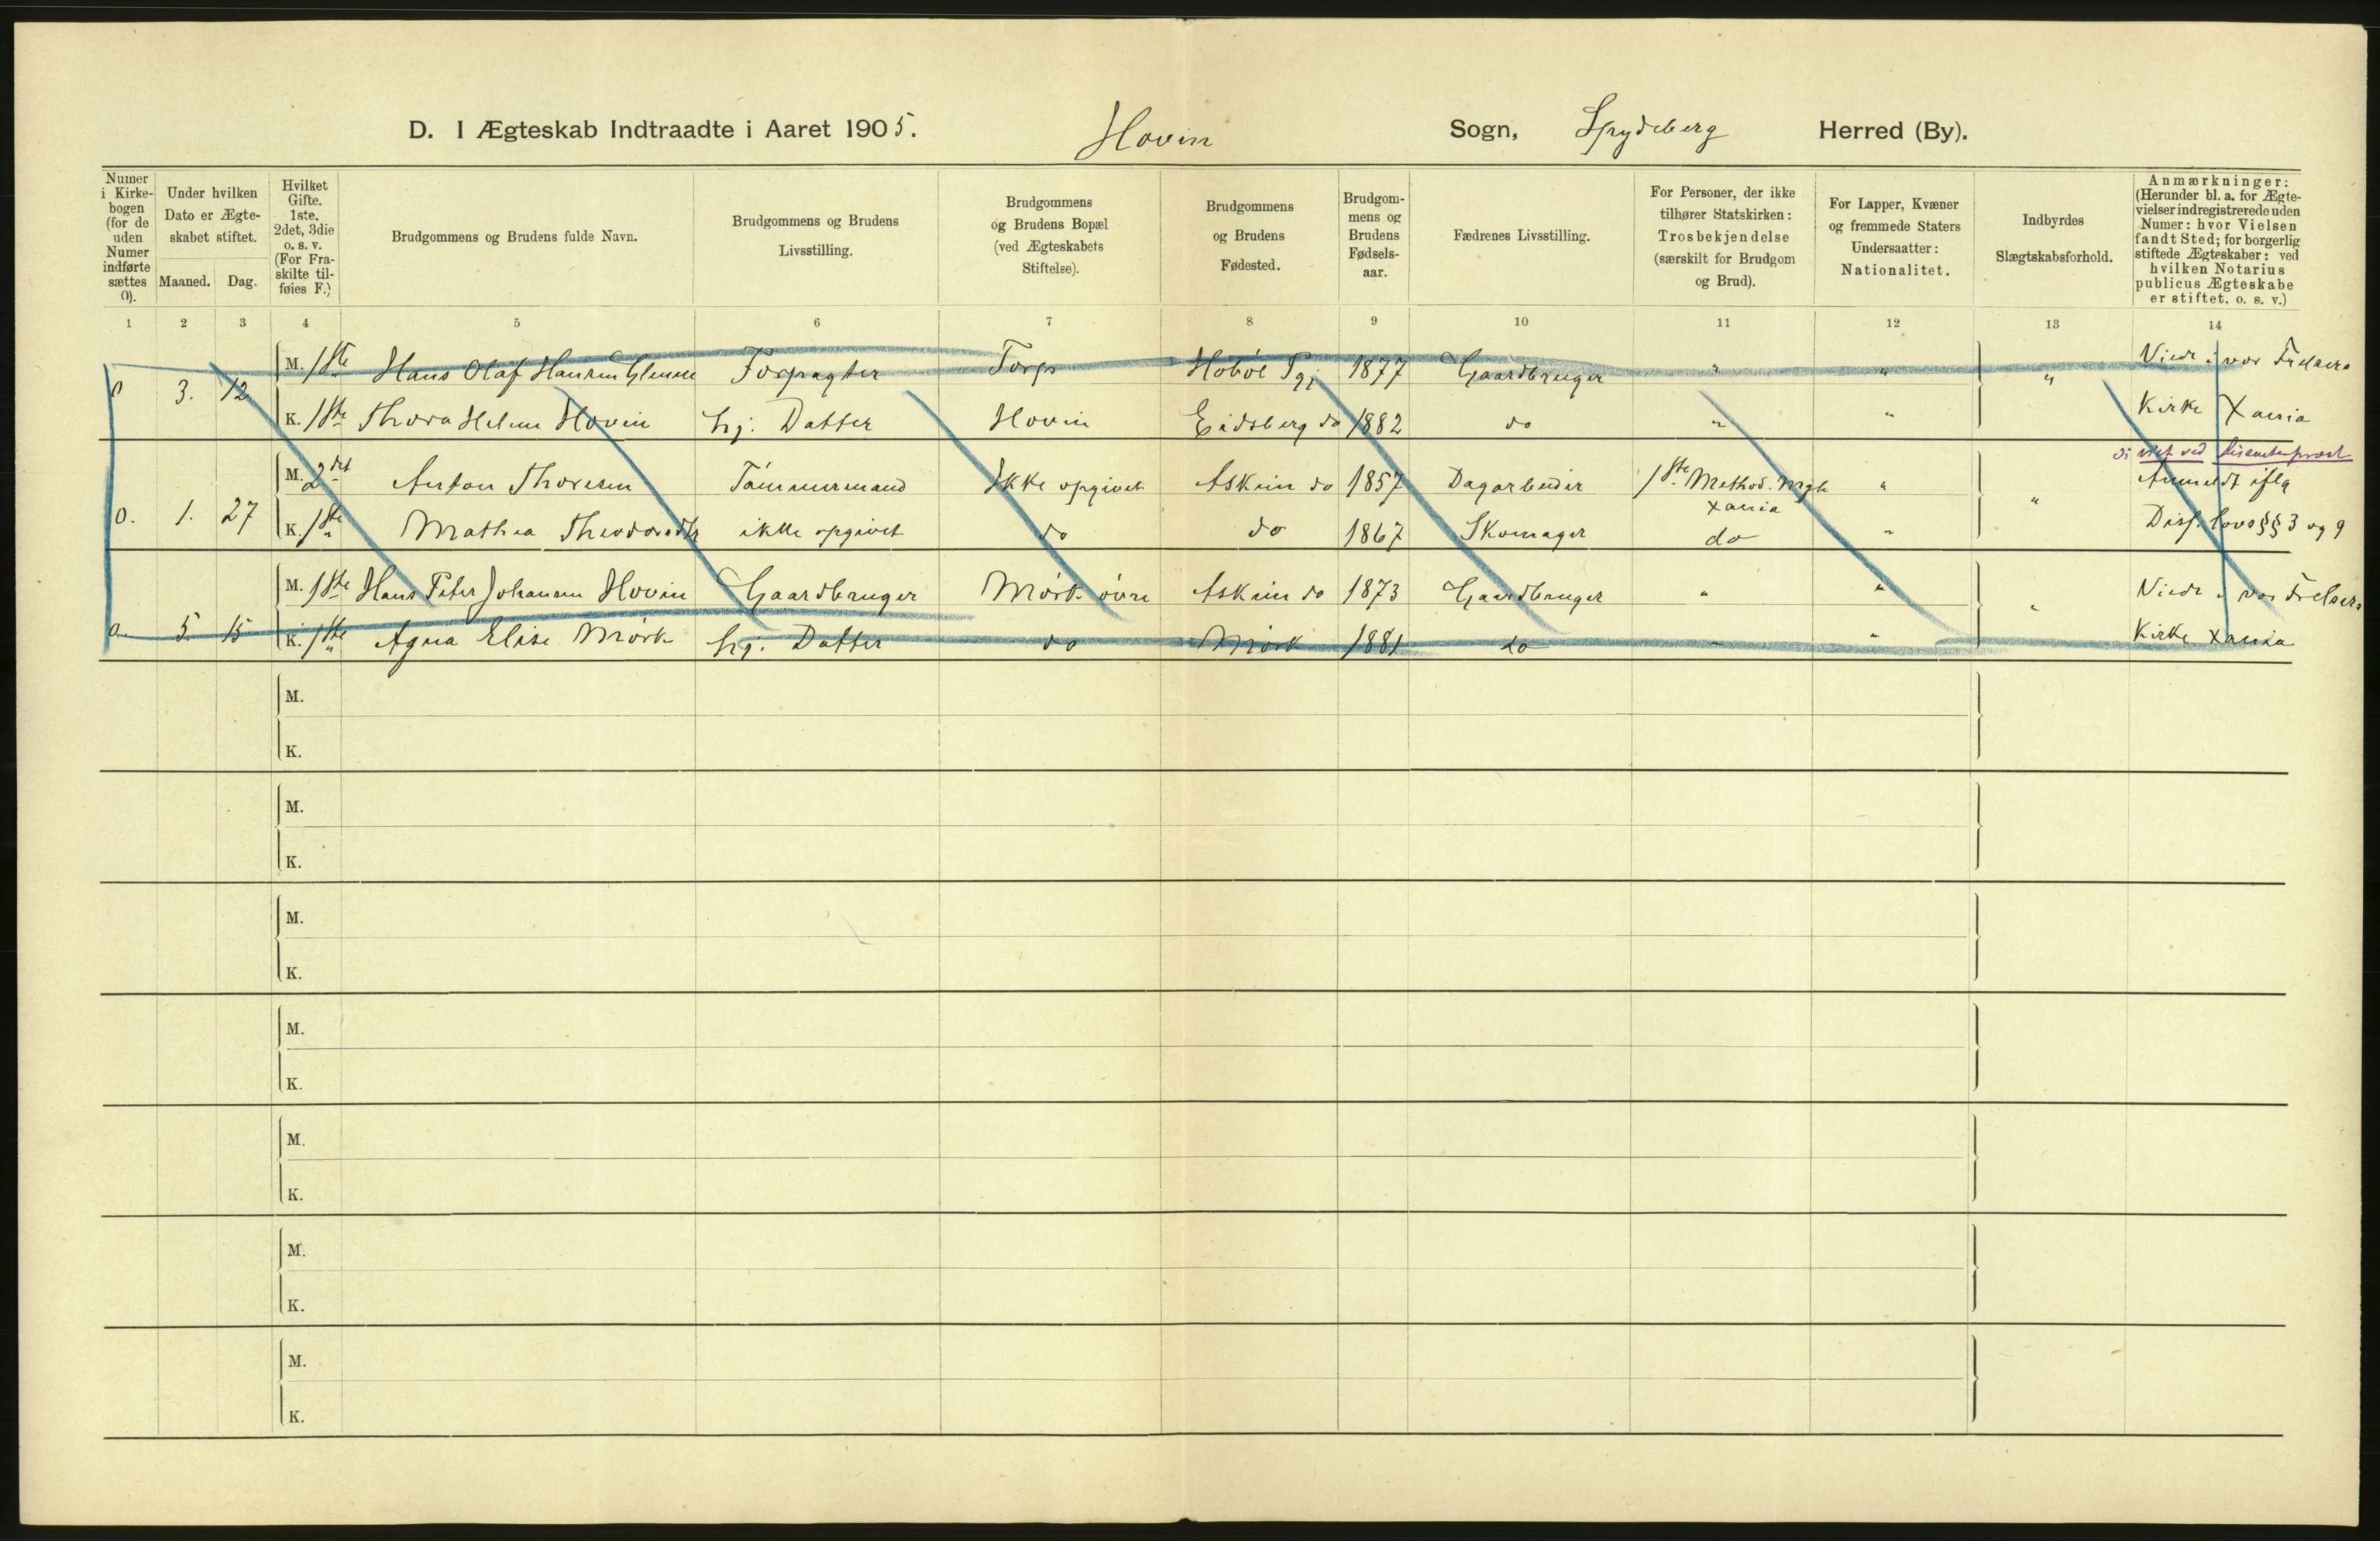 D. I Ægteskab Indtraadte i Aaret 1905. Hovin Sogn, Spydeberg Herred (By).
Numer i Kirke-bogen (for de uden Numer indførte sættes 0).
Under hvilken Dato er Ægte-skabet stiftet.
Maaned. Dag.
Hvilket Gifte. 1ste, 2det, 3die o. s. v. (For Fra-skilte til-føies F.)
Brudgommens og Brudens fulde Navn.
Brudgommens og Brudens Livsstilling.
Brudgommens og Brudens Bopæl (ved Ægteskabets Stiftelse).
Brudgommens og Brudens Fødested.
Brudgom-mens og Brudens Fødsels-aar.
Fædrenes Livsstilling.
For Personer, der ikke tilhører Statskirken: Trosbekjendelse (særskilt for Brudgom og Brud).
For Lapper, Kvæner og fremmede Staters Undersaatter: Nationalitet.
Indbyrdes Slægtskabsforhold.
Anmærkninger: (Herunder bl. a. for Ægte-vielser indregistrerede uden Numer: hvor Vielsen fandt Sted; for borgerlig stiftede Ægteskaber: ved hvilken Notarius publicus Ægteskabe er stiftet, o. s. v.)
1 2 3 4 5 6 7 8 9 10 11 12 13 14
0 3. 12
M. 1ste Hans Olaf Hansen Glenne Forpagter Torp Høbøl Pgj 1877 Gaardbruger " " " Viede i vor Frelsers
K. 1ste Thora Helene Hovin hj: Datter Hovin Eidsberg do 1882 do " " Kirke Xania
viet ved
0. 1. 27
M. 2det Anton Thoresen Tømmermand Ikke opgivet Askim do 1857 Dagarbeider 1ste Method. Mgh Xania " " Anmeldt iflg
K. 1ste Mathea Theodorsdtr ikke opgivet do do 1867 Skomager do " Diss. lovs §§ 3 og 9
0. 5. 15
M. 1ste Hans Peter Johansen Hovin Gaardbruger Mørk øvre Askim do 1873 Gaardbruger " " " Viede i vor Frelsers
K. 1ste Agna Elise Mørk hj: Datter do Mørk 1881 do " " Kirke Xania
M.
K.
M.
K.
M.
K.
M.
K.
M.
K.
M.
K.
M.
K.